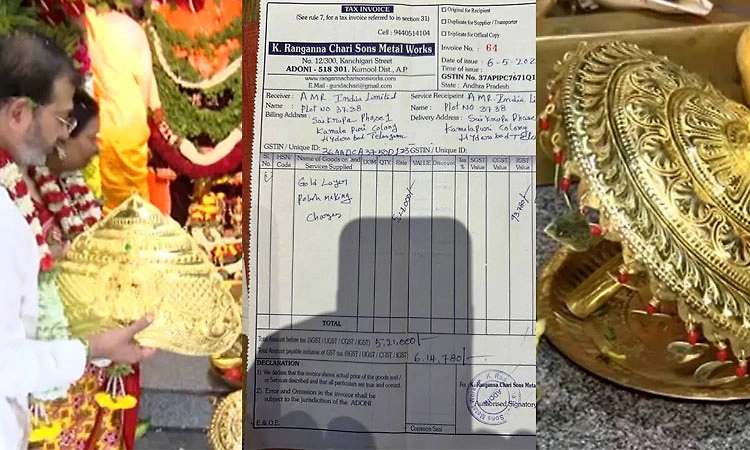 TAX INVOICE
(See rule 7, for a tax invoice referred to in section 31)
Cell : 9440514104
K. Ranganna Chari Sons Metal Works
No. 12/300, Kanchigari Street
ADONI - 518 301. Kurnool Dist., A.P.
www.rangannacharisonsworks.com
E.Mail - gundachari@gmail.com
Original for Recipient
Duplicate for Supplier / Transporter
Triplicate for Office Copy
Invoice No. : 64
Date of issue : 6-5-202
Time of issue :
GSTIN No. 37APIPC7671Q1
State : Andhra Pradesh
Receiver : AMR India Limited
Name : Plot No 37.38
Billing Address : Saikrupa Phase 1
Kamalapuri Colony
Hyderabad Telangana
GSTIN / Unique ID:
Service Receipient : AMR India Li
Name : Plot No 37.38
Delivery Address : Saikrupa Phase
Kamalapuri Colony
Hyderabad Tel
GSTIN / Unique ID:
Sl. No. HSN Code Name of Goods or and Services Supplied UOM QTY. Rate VALUE Discount Tax % SGST Value CGST Value IGST Value
Gold Layer
Polish Making
Charges
5,21,000/-
93,780/-
TOTAL
Total Amount before tax (SGST / UGST / CGST / IGST) 5,21,000/-
Total Amount payable inclusive of GST tax (SGST / UGST / CGST / IGST) 6,14,780/-
DECLARATION :
1). We declare that this invoice shows actual prior of the goods and / or Services Described and that all particulars are true and correct.
2). Error and Omission in the invoice shall be subject to the jurisdiction of the ADONI
E. & O.E.
Common Seal
For K. Ranganna Chari Sons Metal
Authorised Signatory
ADONI